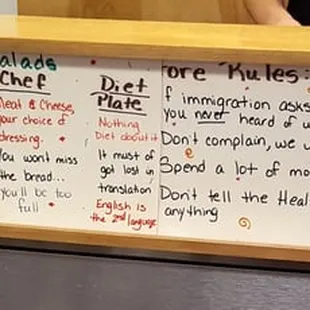 alads
Chef
Meat & Cheese,
your choice of
dressing.
You won't miss
the bread...
you'll be too
full
Diet
Plate
Nothing
Diet about it
It must of
got lost in
translation
English is
the 2nd language
ore Rules:
f immigration asks
you never heard of u
Don't complain, we w
Spend a lot of mo
Don't tell the Heal
anything